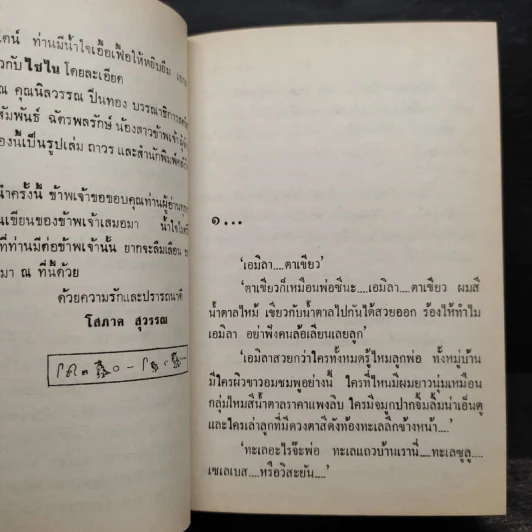 ตน์ ท่านมีน้ำใจเอื้อเฟื้อให้หยิบยืม
วกับ ไซไน โดยละเอียด
ณ คุณนิลวรรณ ปิ่นทอง
สัมพันธ์ ฉัตรพลรักษ์ น้องสาวข้าพเจ้า
องนี้เป็นรูปเล่ม ถาวร และสำนักพิมพ์
นำครั้งนี้ ข้าพเจ้าขอขอบคุณท่านผู้อ่าน
นเขียนของข้าพเจ้าเสมอมา
ที่ท่านมีต่อข้าพเจ้านั้น ยากจะลืมเลือน
มา ณ ที่นี้ด้วย
ด้วยความรักและปรารถนาดี
โสภาค สุวรรณ
๑...
'เอมิลา....ตาเขียว'
'ตาเขียวก็เหมือนพ่อซีนะ....เอมิลา....ตาเขียว ผมสี
น้ำตาลไหม้ เขียวกับน้ำตาลไปกันได้สวยออก ร้องไห้ทำไม
เอมิลา อย่าฟังคนล้อเลียนเลยลูก'
'เอมิลาสวยกว่าใครทั้งหมดรู้ไหมลูกพ่อ ทั้งหมู่บ้าน
มีใครผิวขาวอมชมพูอย่างนี้ ใครที่ไหนมีผมยาวนุ่มเหมือน
กลุ่มไหมสีน้ำตาลราคาแพงลิบ ใครมีจมูกปากจิ้มลิ้มน่าเอ็นดู
และใครเล่าลูกที่มีดวงตาสีดังท้องทะเลลึกข้างหน้า....'
'ทะเลอะไรจ๊ะพ่อ ทะเลแถวบ้านเรานี่....ทะเลซูลู....
เซเลเบส....หรือวิสะยัน....'